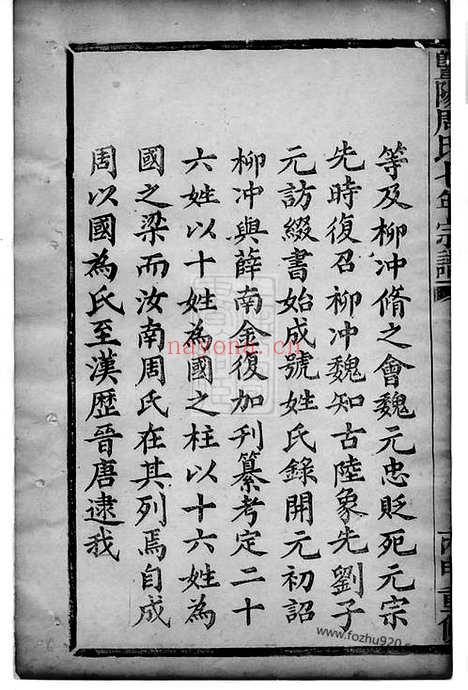 暨陽周氏七年宗譜
等及柳冲脩之會魏元忠貶死元宗
先時復召柳冲魏知古陸象先劉子
元訪綴書始成號姓氏錄開元初詔
柳冲與薛南金復加刋纂考定二十
六姓以十姓為國之柱以十六姓為
國之梁而汝南周氏在其列焉自成
周以國為氏至漢歴晉唐逮我
nayona.cn
www.fozhu920.com